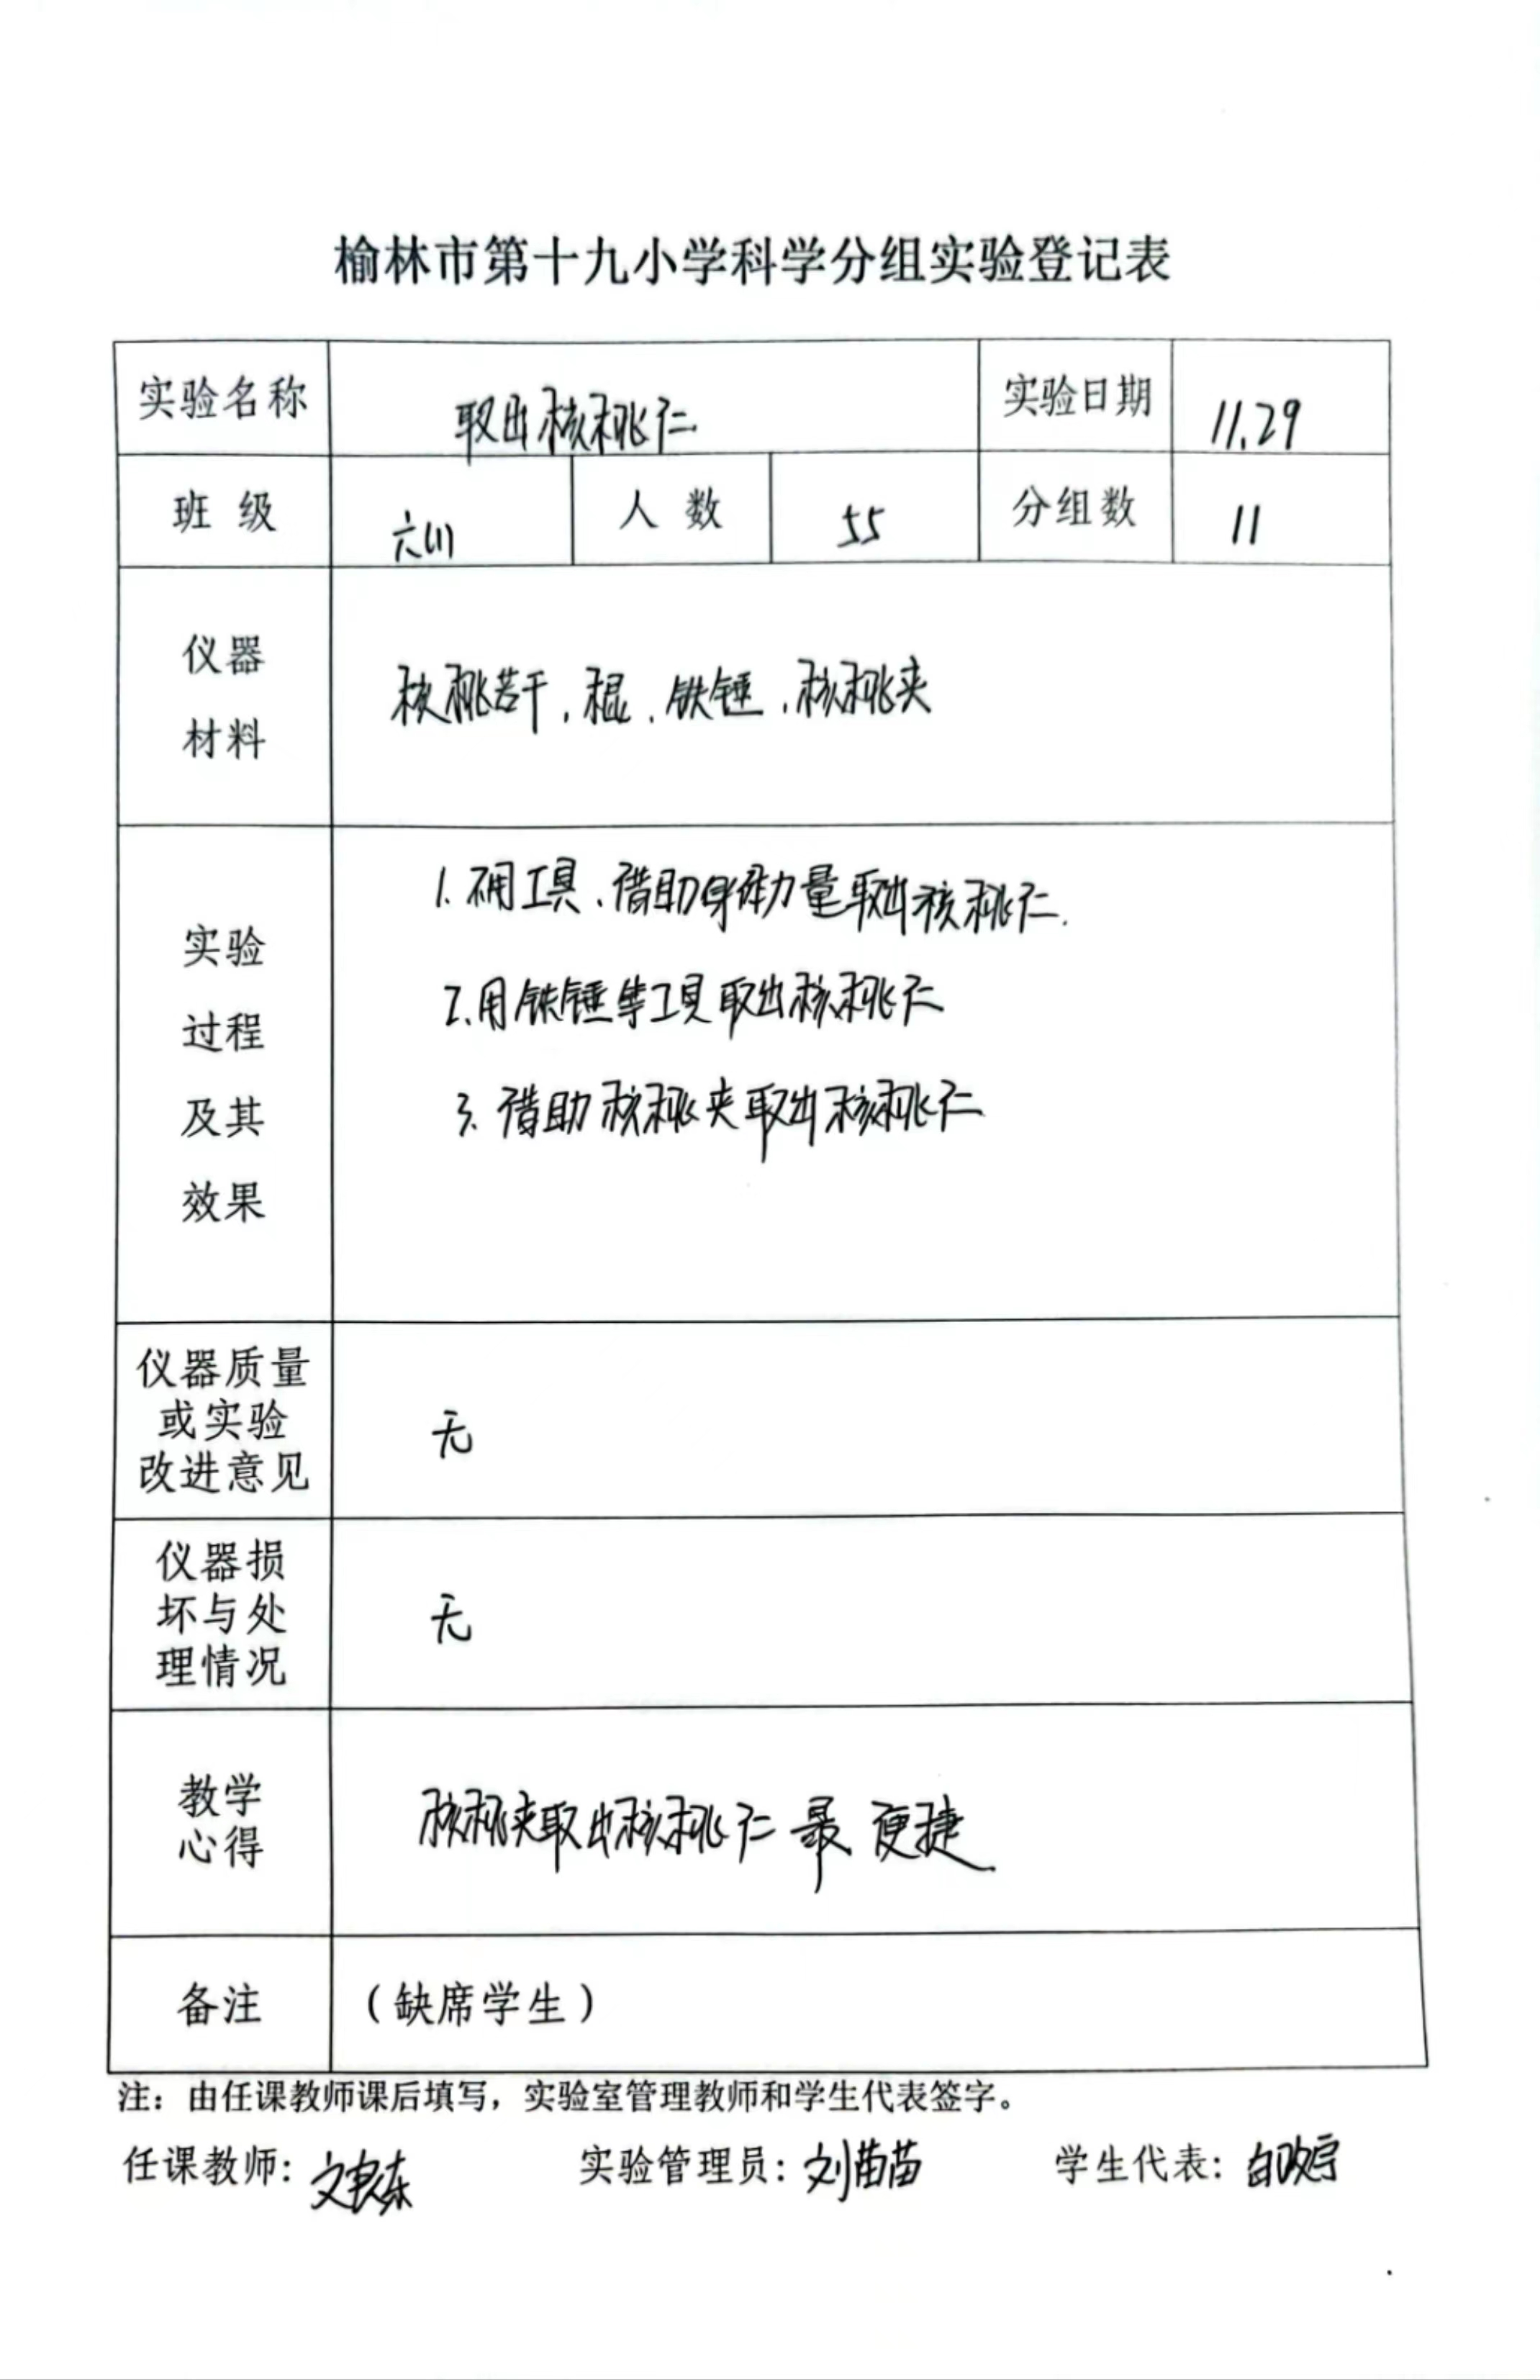 榆林市第十九小学科学分组实验登记表
实验名称 取出核桃仁 实验日期 11.29
班级 六(1) 人数 55 分组数 11
仪器
材料
核桃若干、棍、铁锤、核桃夹
实验
过程
及其
效果
1.不用工具、借助身体力量取出核桃仁.
2.用铁锤等工具取出核桃仁
3.借助核桃夹取出核桃仁
仪器质量
或实验
改进意见
无
仪器损
坏与处
理情况
无
教学
心得
核桃夹取出核桃仁最便捷.
备注 (缺席学生)
注:由任课教师课后填写,实验室管理教师和学生代表签字。
任课教师: 实验管理员:刘苗苗 学生代表: